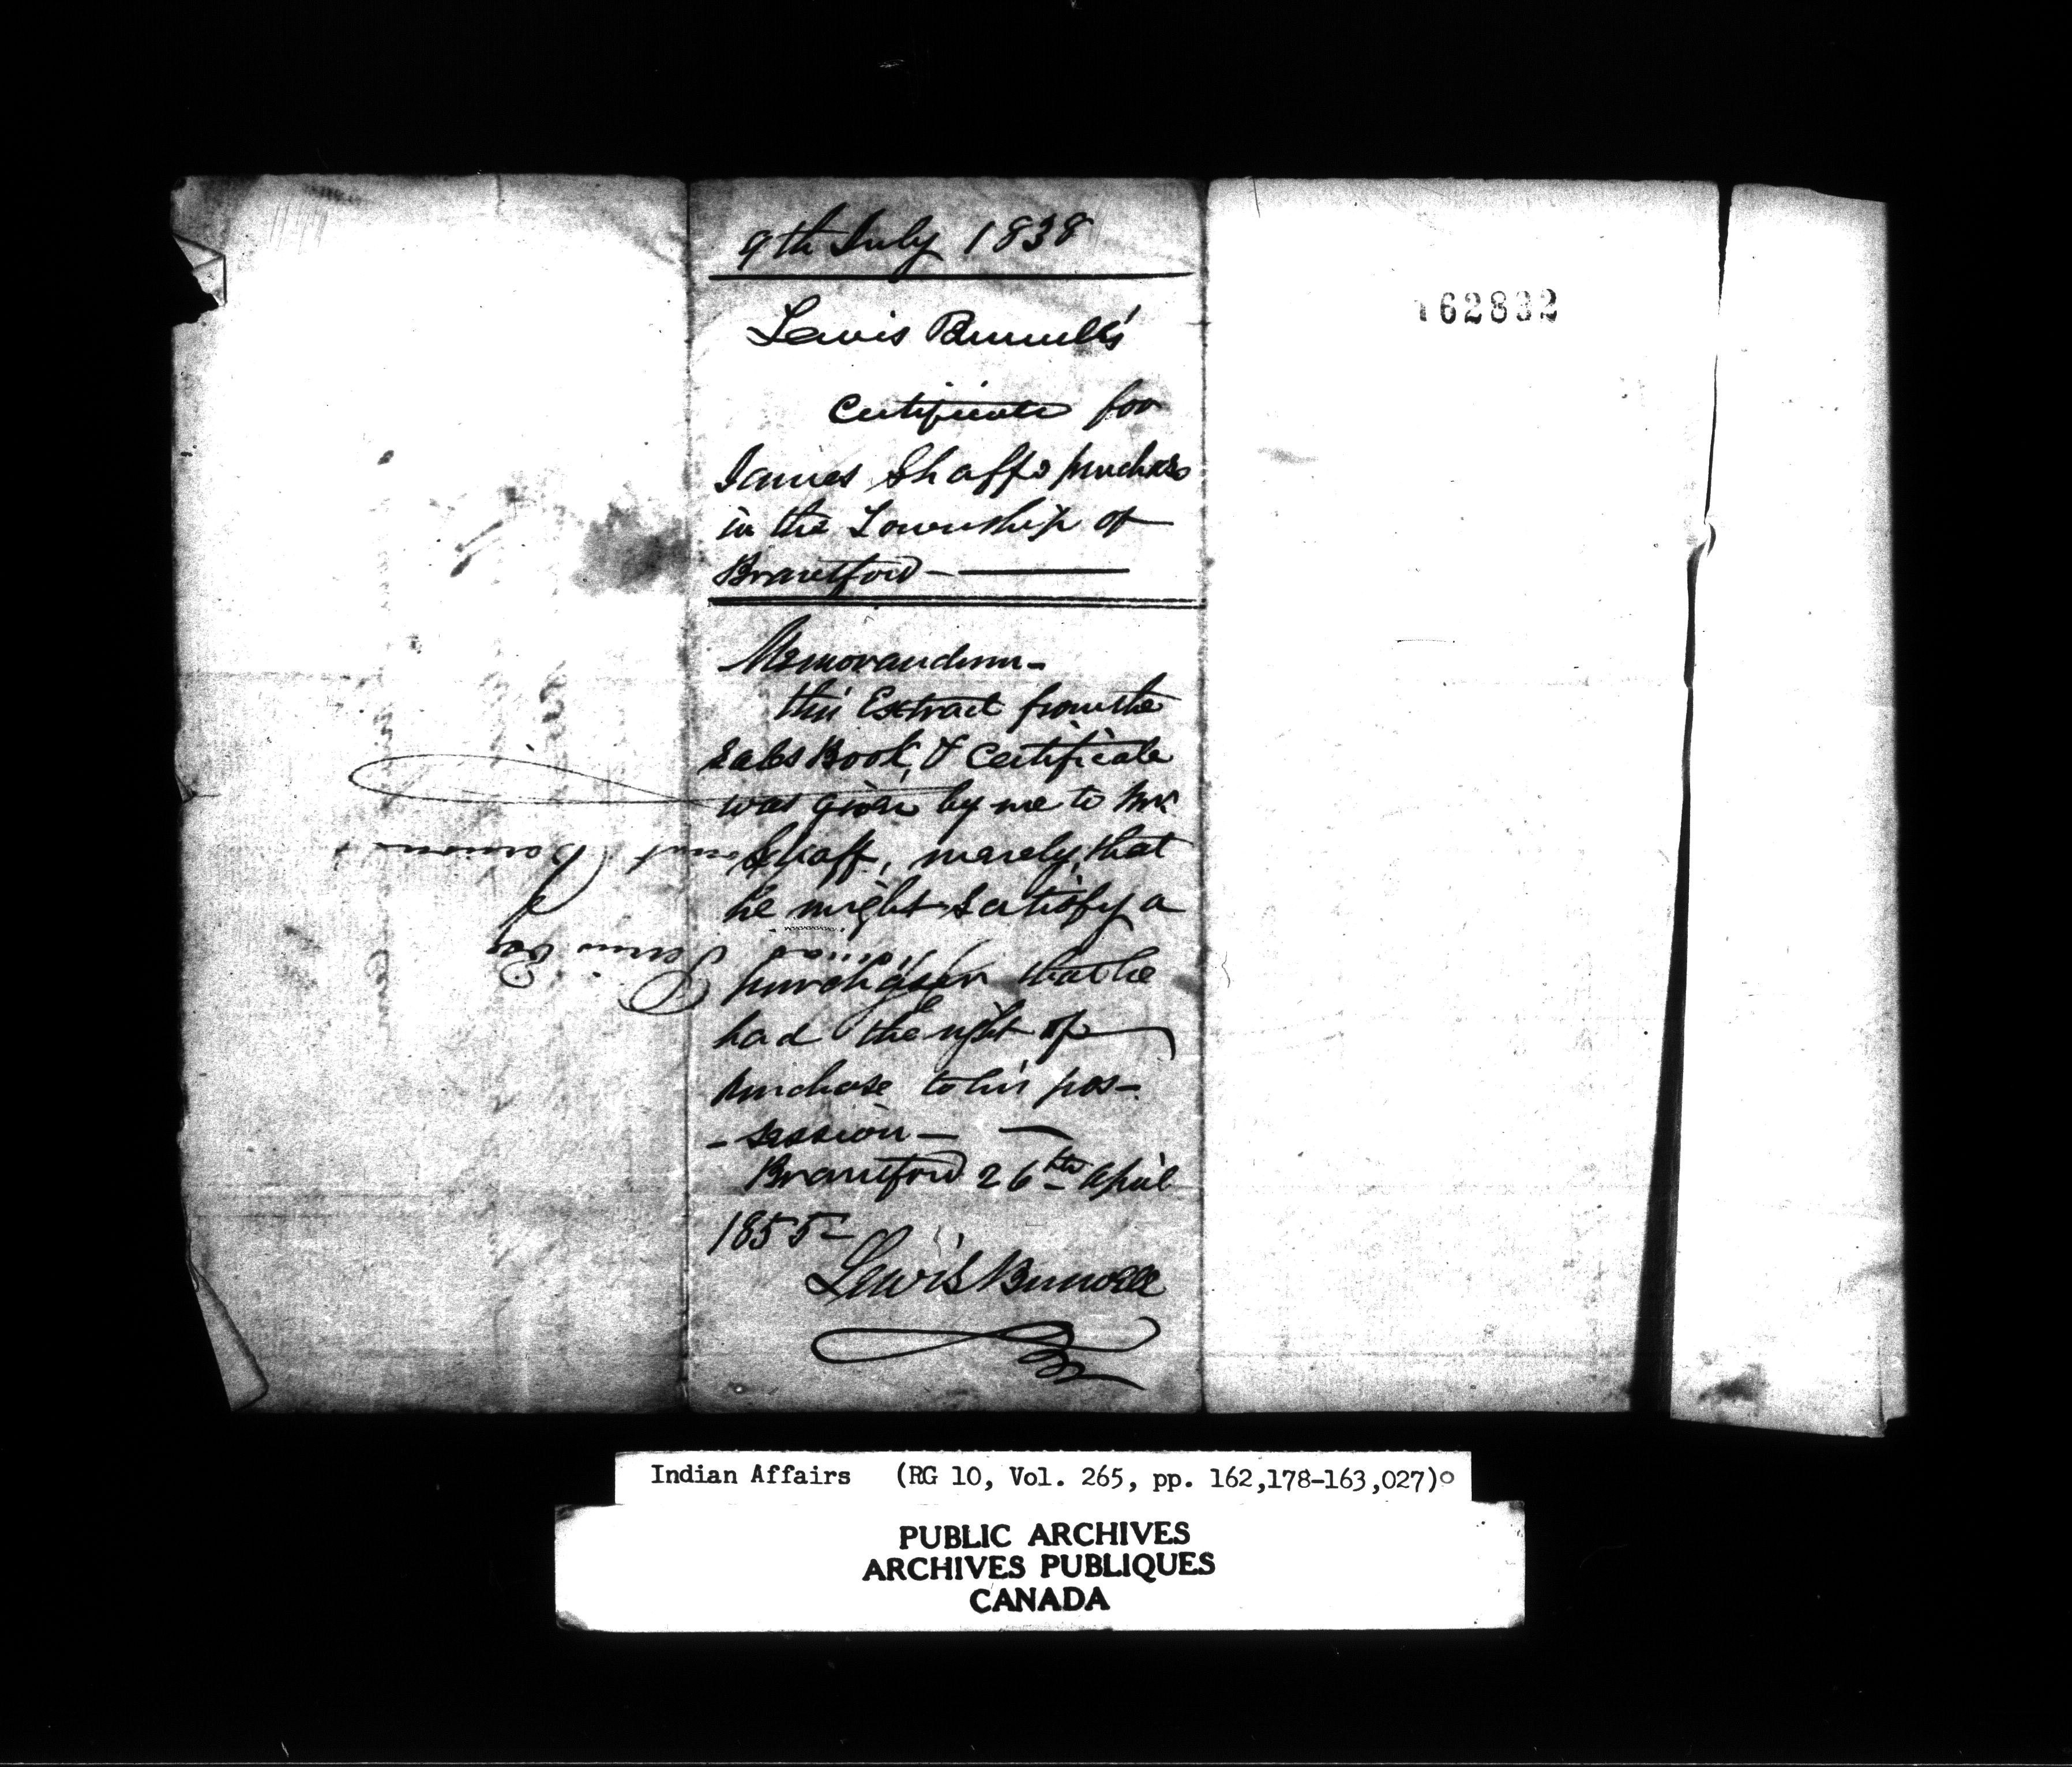 9th July 1838
Lewis Burwell's
Certificate for
James Shaffs purchase
in the Township of
Brantford -
Memorandum -
this Extract from the
Sales Book, & Certificate
was given by me to Mr.
Shaff, merely, that
he might satisfy a
purchaser that he
had the right of
purchase to his pos-
- session -
Brantford 26th April
1855
Lewis Burwell
162832
Indian Affairs (RG 10, Vol. 265, pp. 162,178-163,027)
PUBLIC ARCHIVES
ARCHIVES PUBLIQUES
CANADA